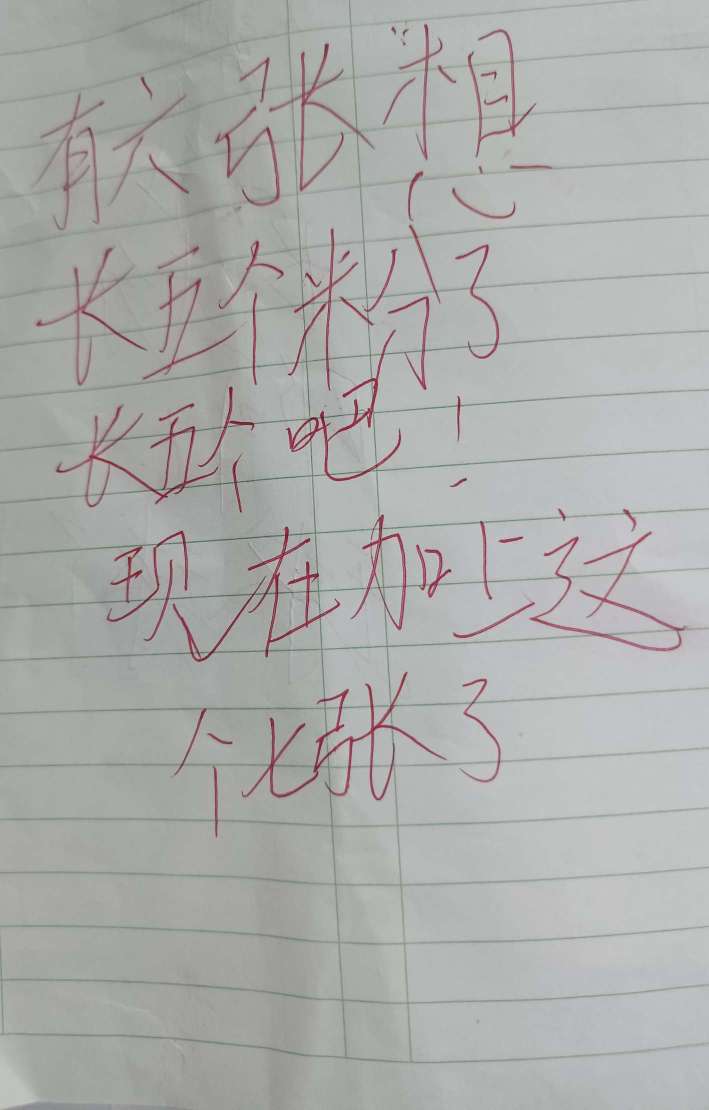 有六张想
长五个米分了
长五个吧!
现在加上这
个七张了